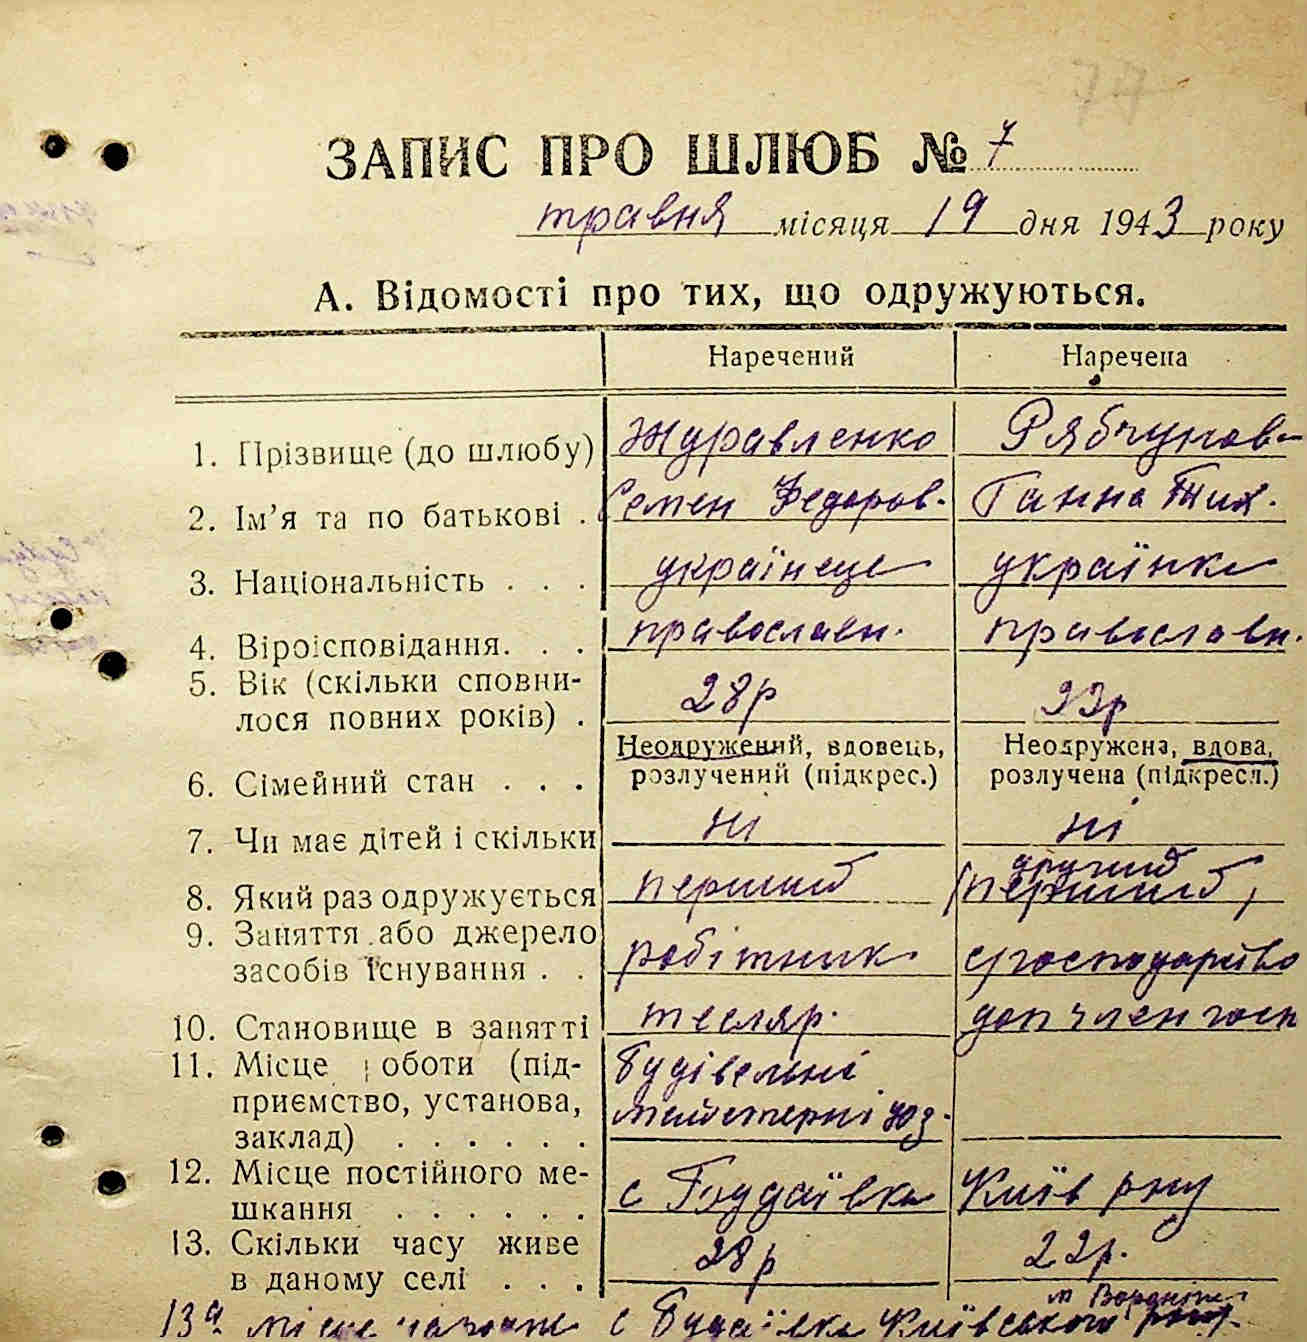 ЗАПИС ПРО ШЛЮБ № 7
травня місяця 19 дня 1943 року
А. Відомості про тих, що одружуються.
Наречений Наречена
1. Прізвище (до шлюбу) Журавленко Рябчунов
2. Ім'я та по батькові . Семен Федоров. Ганна Тих.
3. Національність . . . українець українка
4. Віроісповідання. . . православн. православн.
5. Вік (скільки сповни-
лося повних років) . 28р 23р
Неодружений, вдовець, Неодружена, вдова,
6. Сімейний стан . . . розлучений (підкрес.) розлучена (підкресл.)
7. Чи має дітей і скільки ні ні
другий
8. Який раз одружується перший (перший)
9. Заняття або джерело
засобів існування . . робітник с/господарство
10. Становище в занятті тесляр. доп член госп
11. Місце роботи (під- Будівельні
приємство, установа, майстерні
заклад) . . . . . .
12. Місце постійного ме-
шкання . . . . . . с Буддаївка Київ рну
13. Скільки часу живе
в даному селі . . . 28р 22р.
13а місце с Будаївка Київського